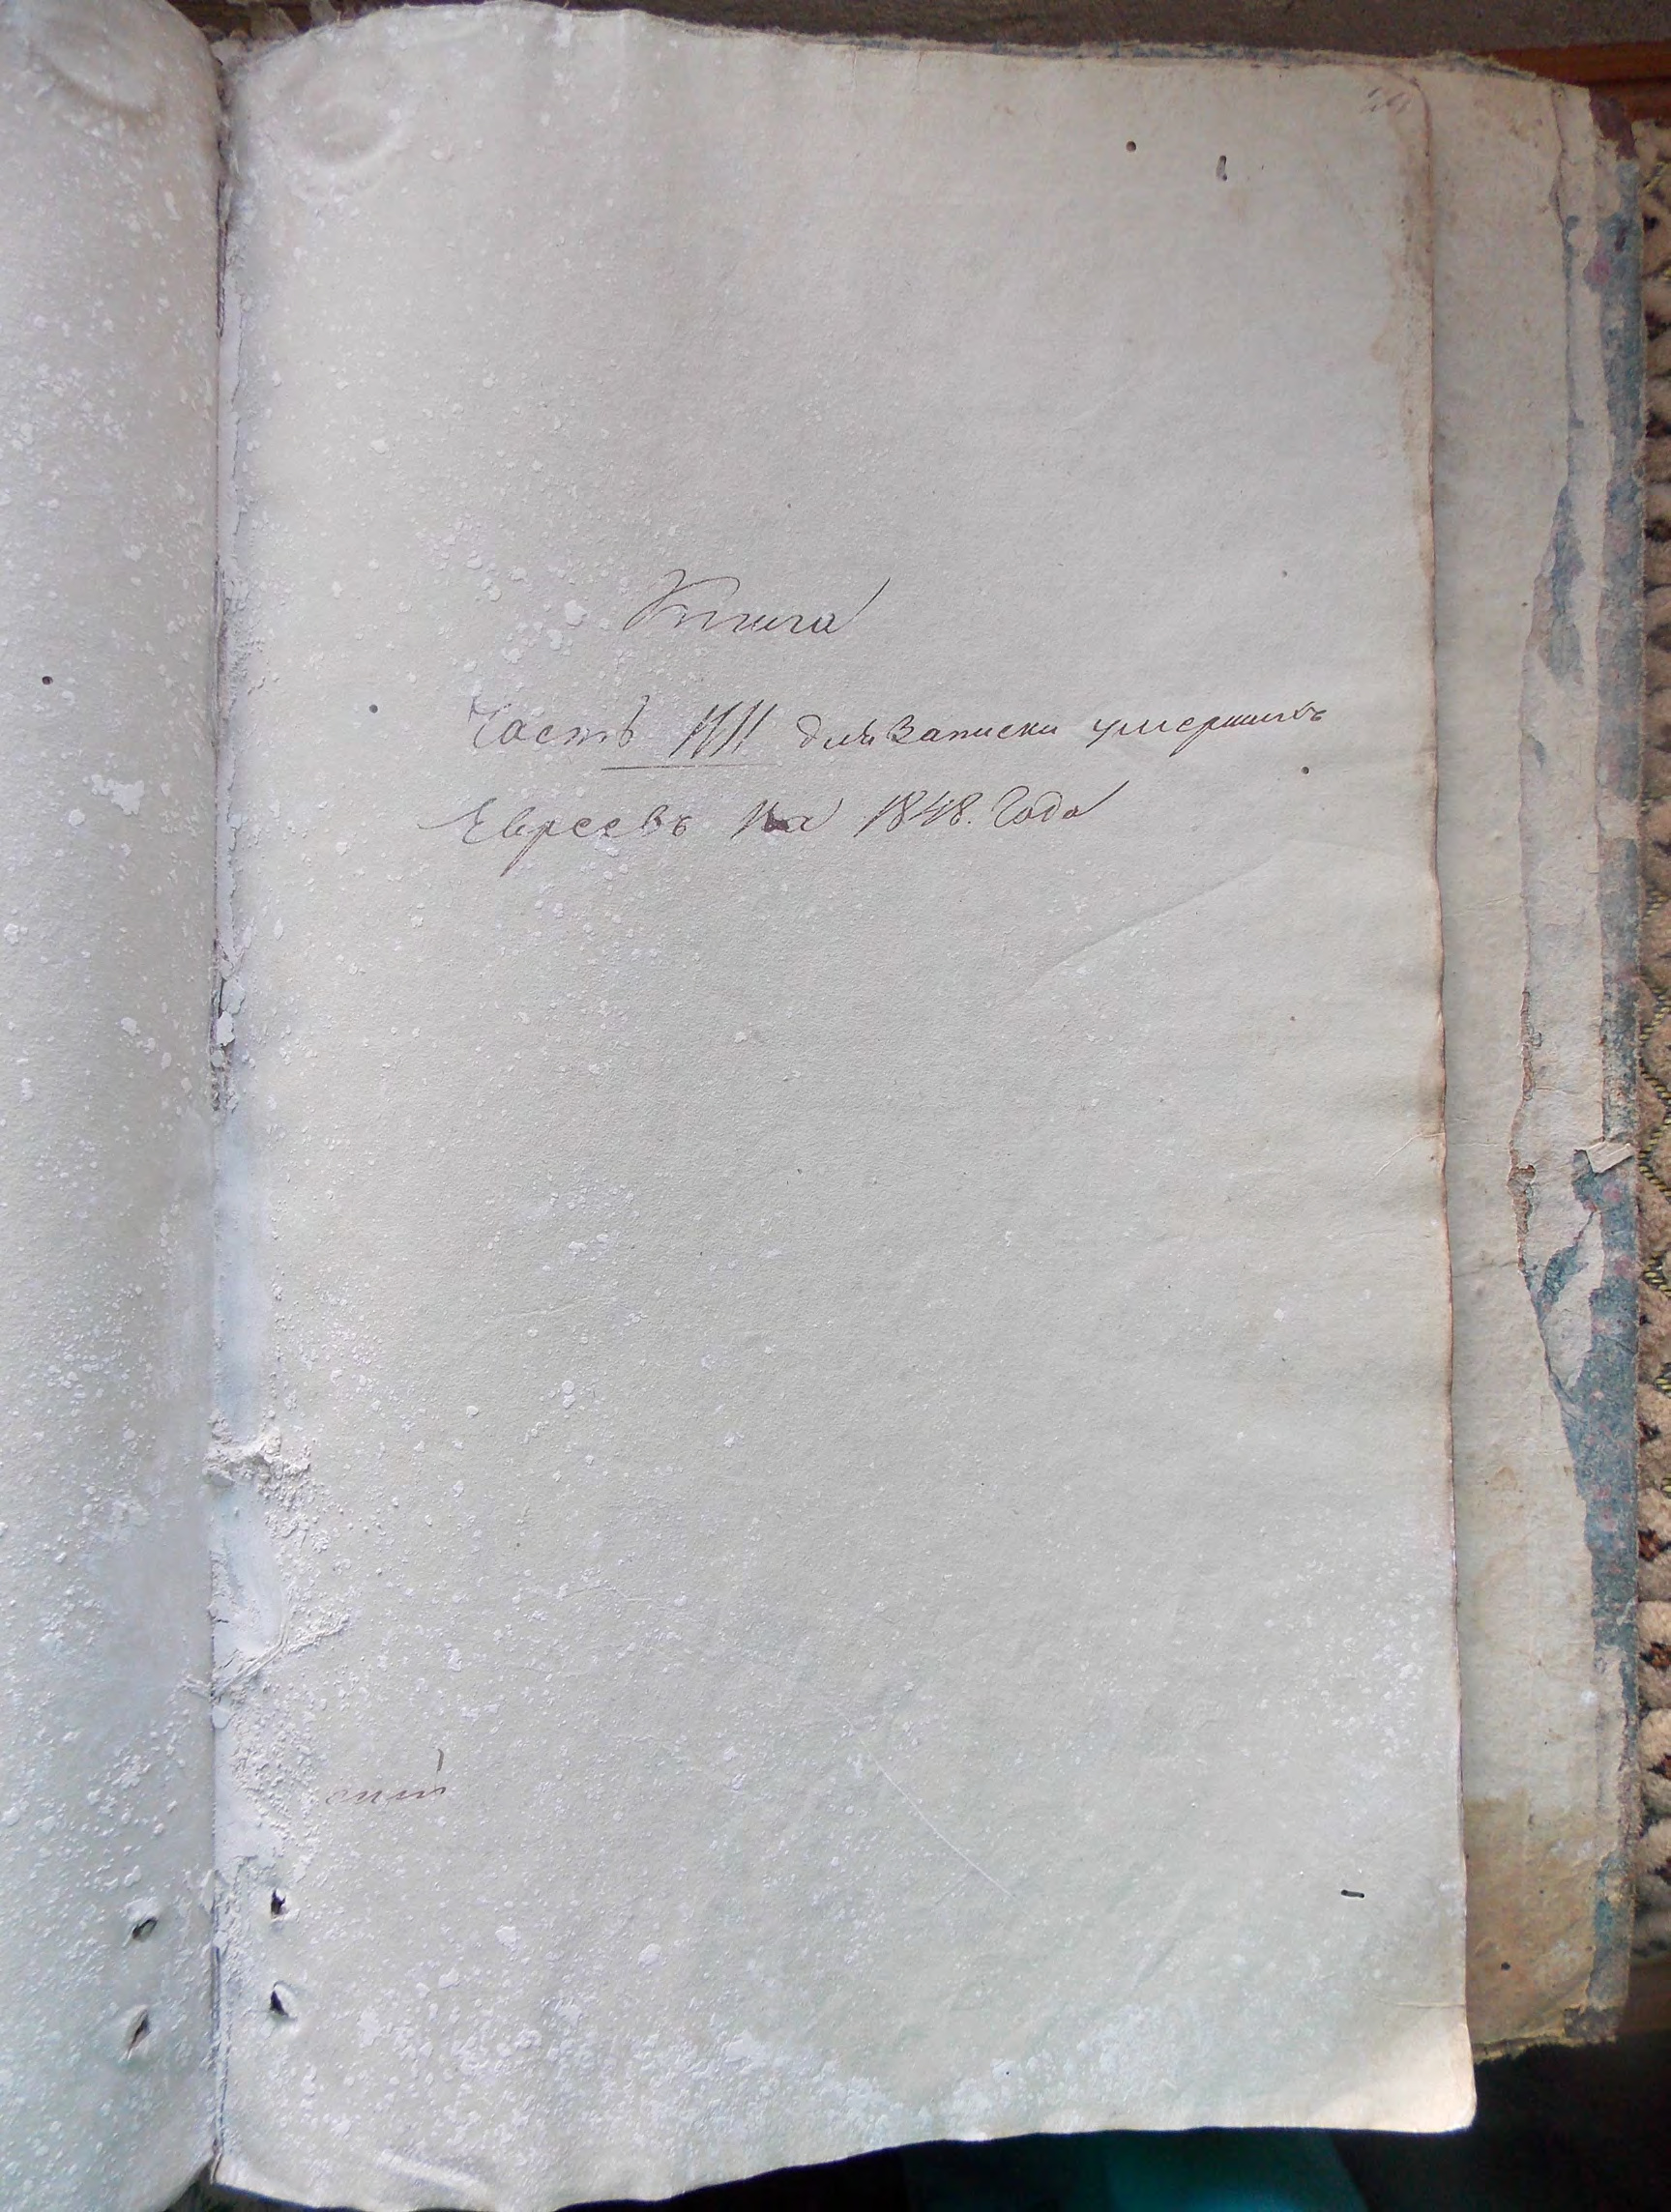 Книга
Часть III для Записки умершихъ
Евреевъ на 1848. Года